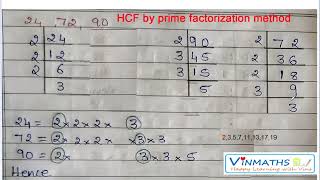 24, 72, 90
HCF by prime factorization method
2 24
2 12
2 6
3
2 90
3 45
3 15
5
2 72
2 36
2 18
3 9
3
24 = 2 x 2 x 2 x 3
72 = 2 x 2 x 2 x 3 x 3
90 = 2 x 3 x 3 x 5
2,3,5,7,11,13,17,19
Hence
VINMATHS
Happy Learning with Vins